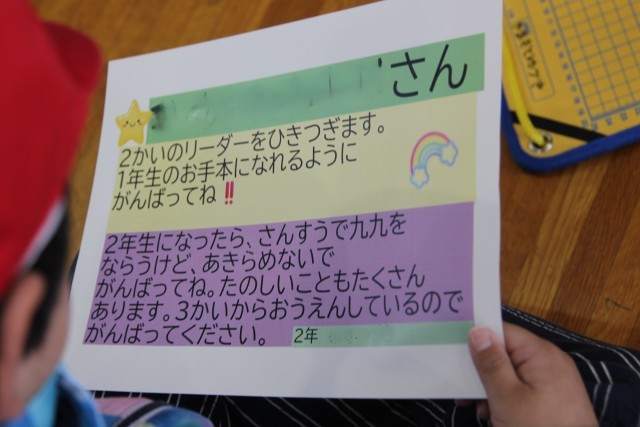 さん
2かいのリーダーをひきつぎます。
1年生のお手本になれるように
がんばってね‼
2年生になったら、さんすうで九九を
ならうけど、あきらめないで
がんばってね。たのしいこともたくさん
あります。3かいからおうえんしているので
がんばってください。
2年